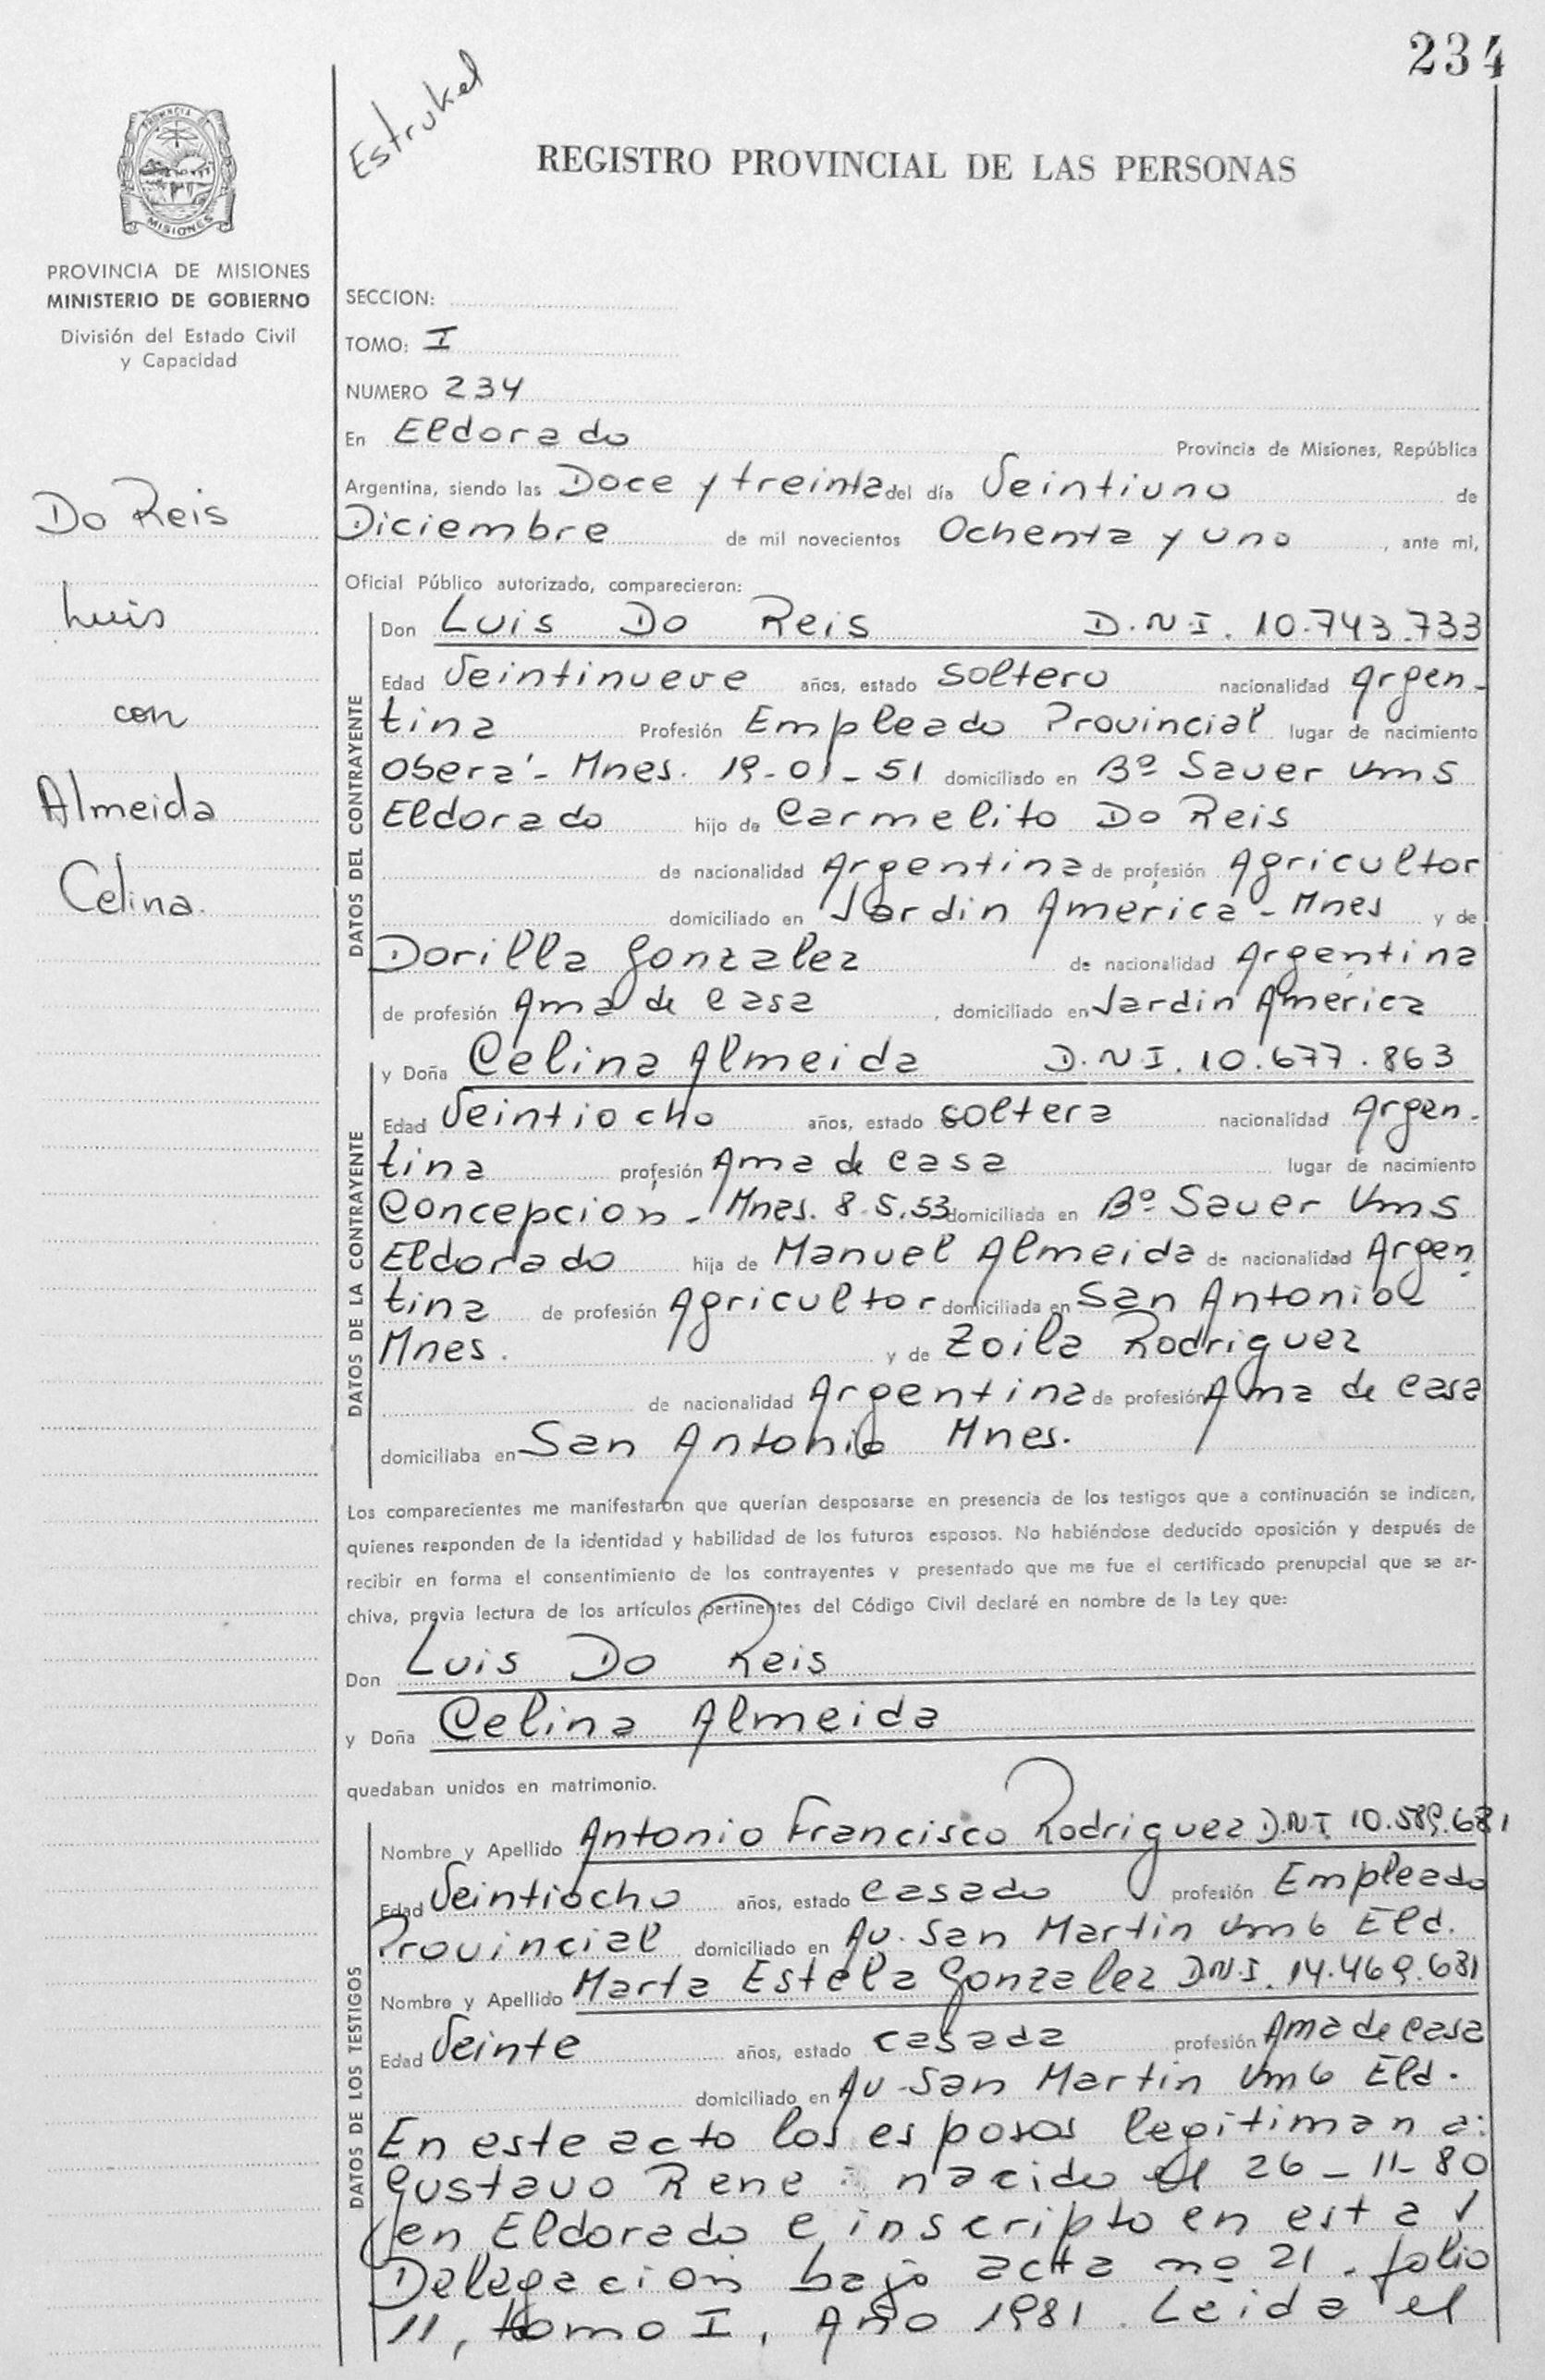 234
Estrukel
REGISTRO PROVINCIAL DE LAS PERSONAS
PROVINCIA DE
MISIONES
PROVINCIA DE MISIONES
MINISTERIO DE GOBIERNO
División del Estado Civil
y Capacidad
Do Reis
Luis
con
Almeida
Celina.
SECCION:
TOMO: I
NUMERO 234
En Eldorado Provincia de Misiones, República
Argentina, siendo las Doce y treinta del día Veintiuno de
Diciembre de mil novecientos Ochenta y uno, ante mi,
Oficial Público autorizado, comparecieron:
DATOS DEL CONTRAYENTE
Don Luis Do Reis D.N.I. 10.743.733
Edad Veintinueve años, estado soltero nacionalidad Argen-
tina Profesión Empleado Provincial lugar de nacimiento
Oberá - Mnes. 19-01-51 domiciliado en Bº Sauer Km 5
Eldorado hijo de Carmelito Do Reis
de nacionalidad Argentina de profesión Agricultor
domiciliado en Jardin América - Mnes y de
Dorilla Gonzalez de nacionalidad Argentina
de profesión Ama de casa, domiciliado en Jardin América
DATOS DE LA CONTRAYENTE
y Doña Celina Almeida D.N.I. 10.677.863
Edad Veintiocho años, estado soltera nacionalidad Argen-
tina profesión Ama de casa lugar de nacimiento
Concepción - Mnes. 8.5.53 domiciliada en Bº Sauer Km 5
Eldorado hija de Manuel Almeida de nacionalidad Argen
tina de profesión Agricultor domiciliada en San Antonio
Mnes. y de Zoila Rodriguez
de nacionalidad Argentina de profesión Ama de casa
domiciliaba en San Antonio Mnes.
Los comparecientes me manifestaron que querían desposarse en presencia de los testigos que a continuación se indican,
quienes responden de la identidad y habilidad de los futuros esposos. No habiéndose deducido oposición y después de
recibir en forma el consentimiento de los contrayentes y presentado que me fue el certificado prenupcial que se ar-
chiva, previa lectura de los artículos pertinentes del Código Civil declaré en nombre de la Ley que:
Don Luis Do Reis
y Doña Celina Almeida
quedaban unidos en matrimonio.
DATOS DE LOS TESTIGOS
Nombre y Apellido Antonio Francisco Rodriguez D.N.I. 10.589.681
Edad Veintiocho años, estado casado profesión Empleado
Provincial domiciliado en Av. San Martin Km 6 Eld.
Nombre y Apellido Marta Estela Gonzalez D.N.I. 14.469.681
Edad Veinte años, estado casada profesión Ama de casa
domiciliado en Av. San Martin Km 6 Eld.
En este acto los esposos legitiman a:
Gustavo Rene nacido el 26-11-80
en Eldorado e inscripto en esta
Delegación bajo acta nº 21, folio
11, tomo I, Año 1981. Leida el